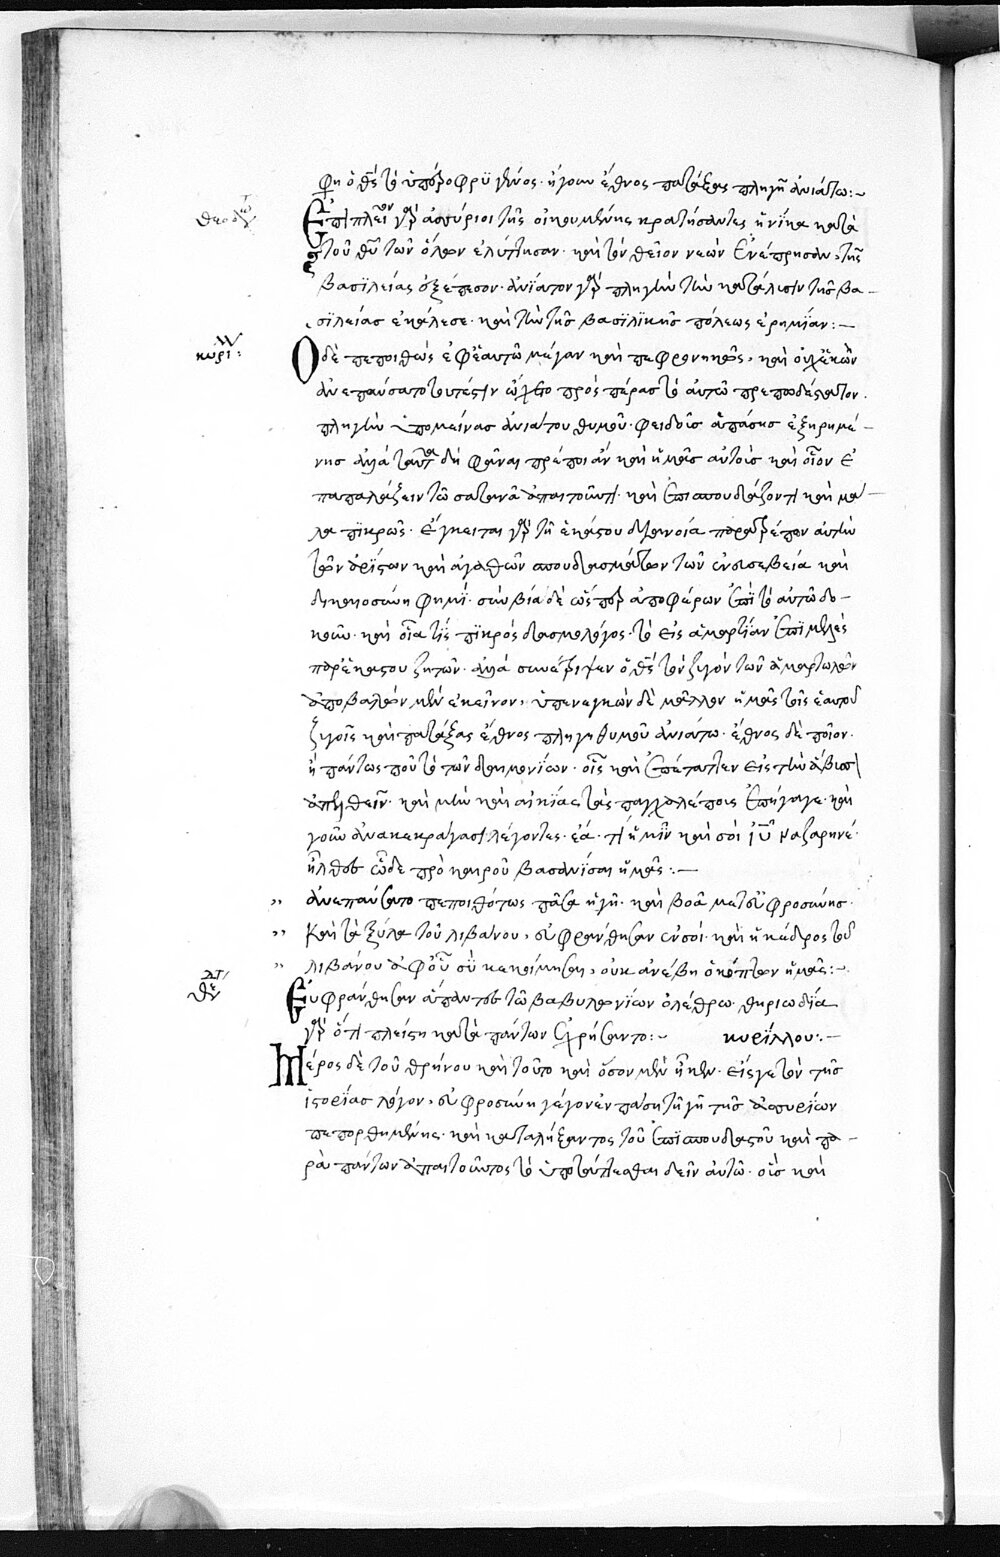 φη ὁ θς τὸ ὑπόζοφρϋ γένος. ἤγουν ἔθνος πατάξας πληγῇ ἀνιάτω:~
θεοδ
Επιπλεῖον γὰρ ἀσσύριοι τῆς οἰκουμένης κρατήσαντες, ἡνίκα κατὰ
τοῦ θυ τῶν ὅλων ἐλύττησαν. καὶ τὸν θεῖον νεὼν ἐνέπρησαν, τῆς
βασϊλείας ἐξέπεσον. ἀνίατον γὰρ πληγὴν τὴν κατάλυσιν τῆς βα-
σϊλείας ἐκάλεσε. καὶ τὴν τῆς βασϊλϊκῆς πόλεως ἐρημΐαν:-
κυρι:
Ὁ δὲ πεποιθὼς ἐφ' ἑαυτῶ μέγαν καὶ πεφρονηκὼς, καὶ οὐχ ἑκὼν
ἀνεπαύσατο τουτέστιν ὤχετο πρὸς πέρας τὸ αὐτῶ πρεπωδέστατον.
πληγὴν ὑπομείνας ἀνιάτου θυμοῦ. φειδοῦς ἁπάσης ἐξηρημέ-
νης ἀλλὰ ταῦτα δὴ φᾶναι πρέποι ἂν καὶ ἡμᾶς αὐτοὺς καὶ οἷον ἐ
παπαλάξειν τῶ σατανᾶ ἀπαιτοῦντι. καὶ ἐπισπουδάζοντι καὶ μά-
λα πϊκρῶς. ἔγκειται γὰρ τῆ ἑκάστου διανοία παρατρέπων αὐτὴν
τῶν ἀρίστων καὶ ἀγαθῶν σπουδασμάτων τῶν ἐν εὐσεβεία καὶ
δικαιοσύνη φημί. σὺν βία δὲ ὥσπερ ἀποφέρων ἐπὶ τὸ αὐτῶ δο-
κοῦν. καὶ οἷά τϊς πϊκρὸς δασμολόγος. τὸ εἰς ἁμαρτΐαν ἐπϊμελὲς
παρ' ἑκάστου ζητῶν. ἀλλὰ συνέτριψεν ὁ θς τὸν ζυγὸν τῶν ἁμαρτωλῶν
ἀποβαλὼν μὲν ἐκεῖνον, ὑπενεγκὼν δὲ μᾶλλον ἡμᾶς τοῖς ἑαυτοῦ
ζυγοῖς καὶ πατάξας ἔθνος πληγῆ θυμοῦ ἀνιάτω. ἔθνος δὲ ποῖον.
ἢ πάντως που τὸ τῶν δαιμονίων. οἷς καὶ ἐπέταττεν εἰς τὴν ἄβυσσον
ἀπελθεῖν. καὶ μὴν καὶ αἰκίας τὰς παγχαλέπους ἐπήγαγε. καὶ
γοῦν ἀνακεκράγασι λέγοντες. ἔα. τί ἡμῖν καὶ σοὶ ιυ ναζαρηνέ.
ἦλθες ὧδε πρὸ καιροῦ βασανίσαι ἡμᾶς:-
" ἀνεπαύσατο πεποιθότως πᾶσα ἡ γῆ. καὶ βοᾶ μετ' εὐφροσύνης.
" Καὶ τὰ ξύλα τοῦ λιβάνου, εὐφράνθησαν ἐν σοί. καὶ ἡ κέδρος τοῦ
" λιβάνου ἀφ' οὗ σὺ κεκοίμησαι, οὐκ ἀνέβη ὁ κόπτων ἡμᾶς:~
Εὐφράνθησαν ἅπαντες τῶ βαβυλωνίων ὀλέθρω. θηριωδία
γὰρ ὅτι πλείστη κατὰ πάντων ἐχρήσαντο:~ κυρΐλλου:-
Μέρος δὲ τοῦ θρήνου καὶ τοῦτο καὶ ὅσον μὲν ἧκεν. εἴς γε τὸν τῆς
ἱστορΐας λόγον, εὐφροσύνη γέγονεν πάση τῆ γῆ τῆς ἀσσυρΐων
πεπορθημένης. καὶ καταλήξαντος τοῦ ἐπϊσπουδαστοῦ καὶ πα-
ρὰ πάντων ἀπαιτοῦντος τὸ ὑποτάττεσθαι δεῖν αὐτῶ. οἷς καὶ